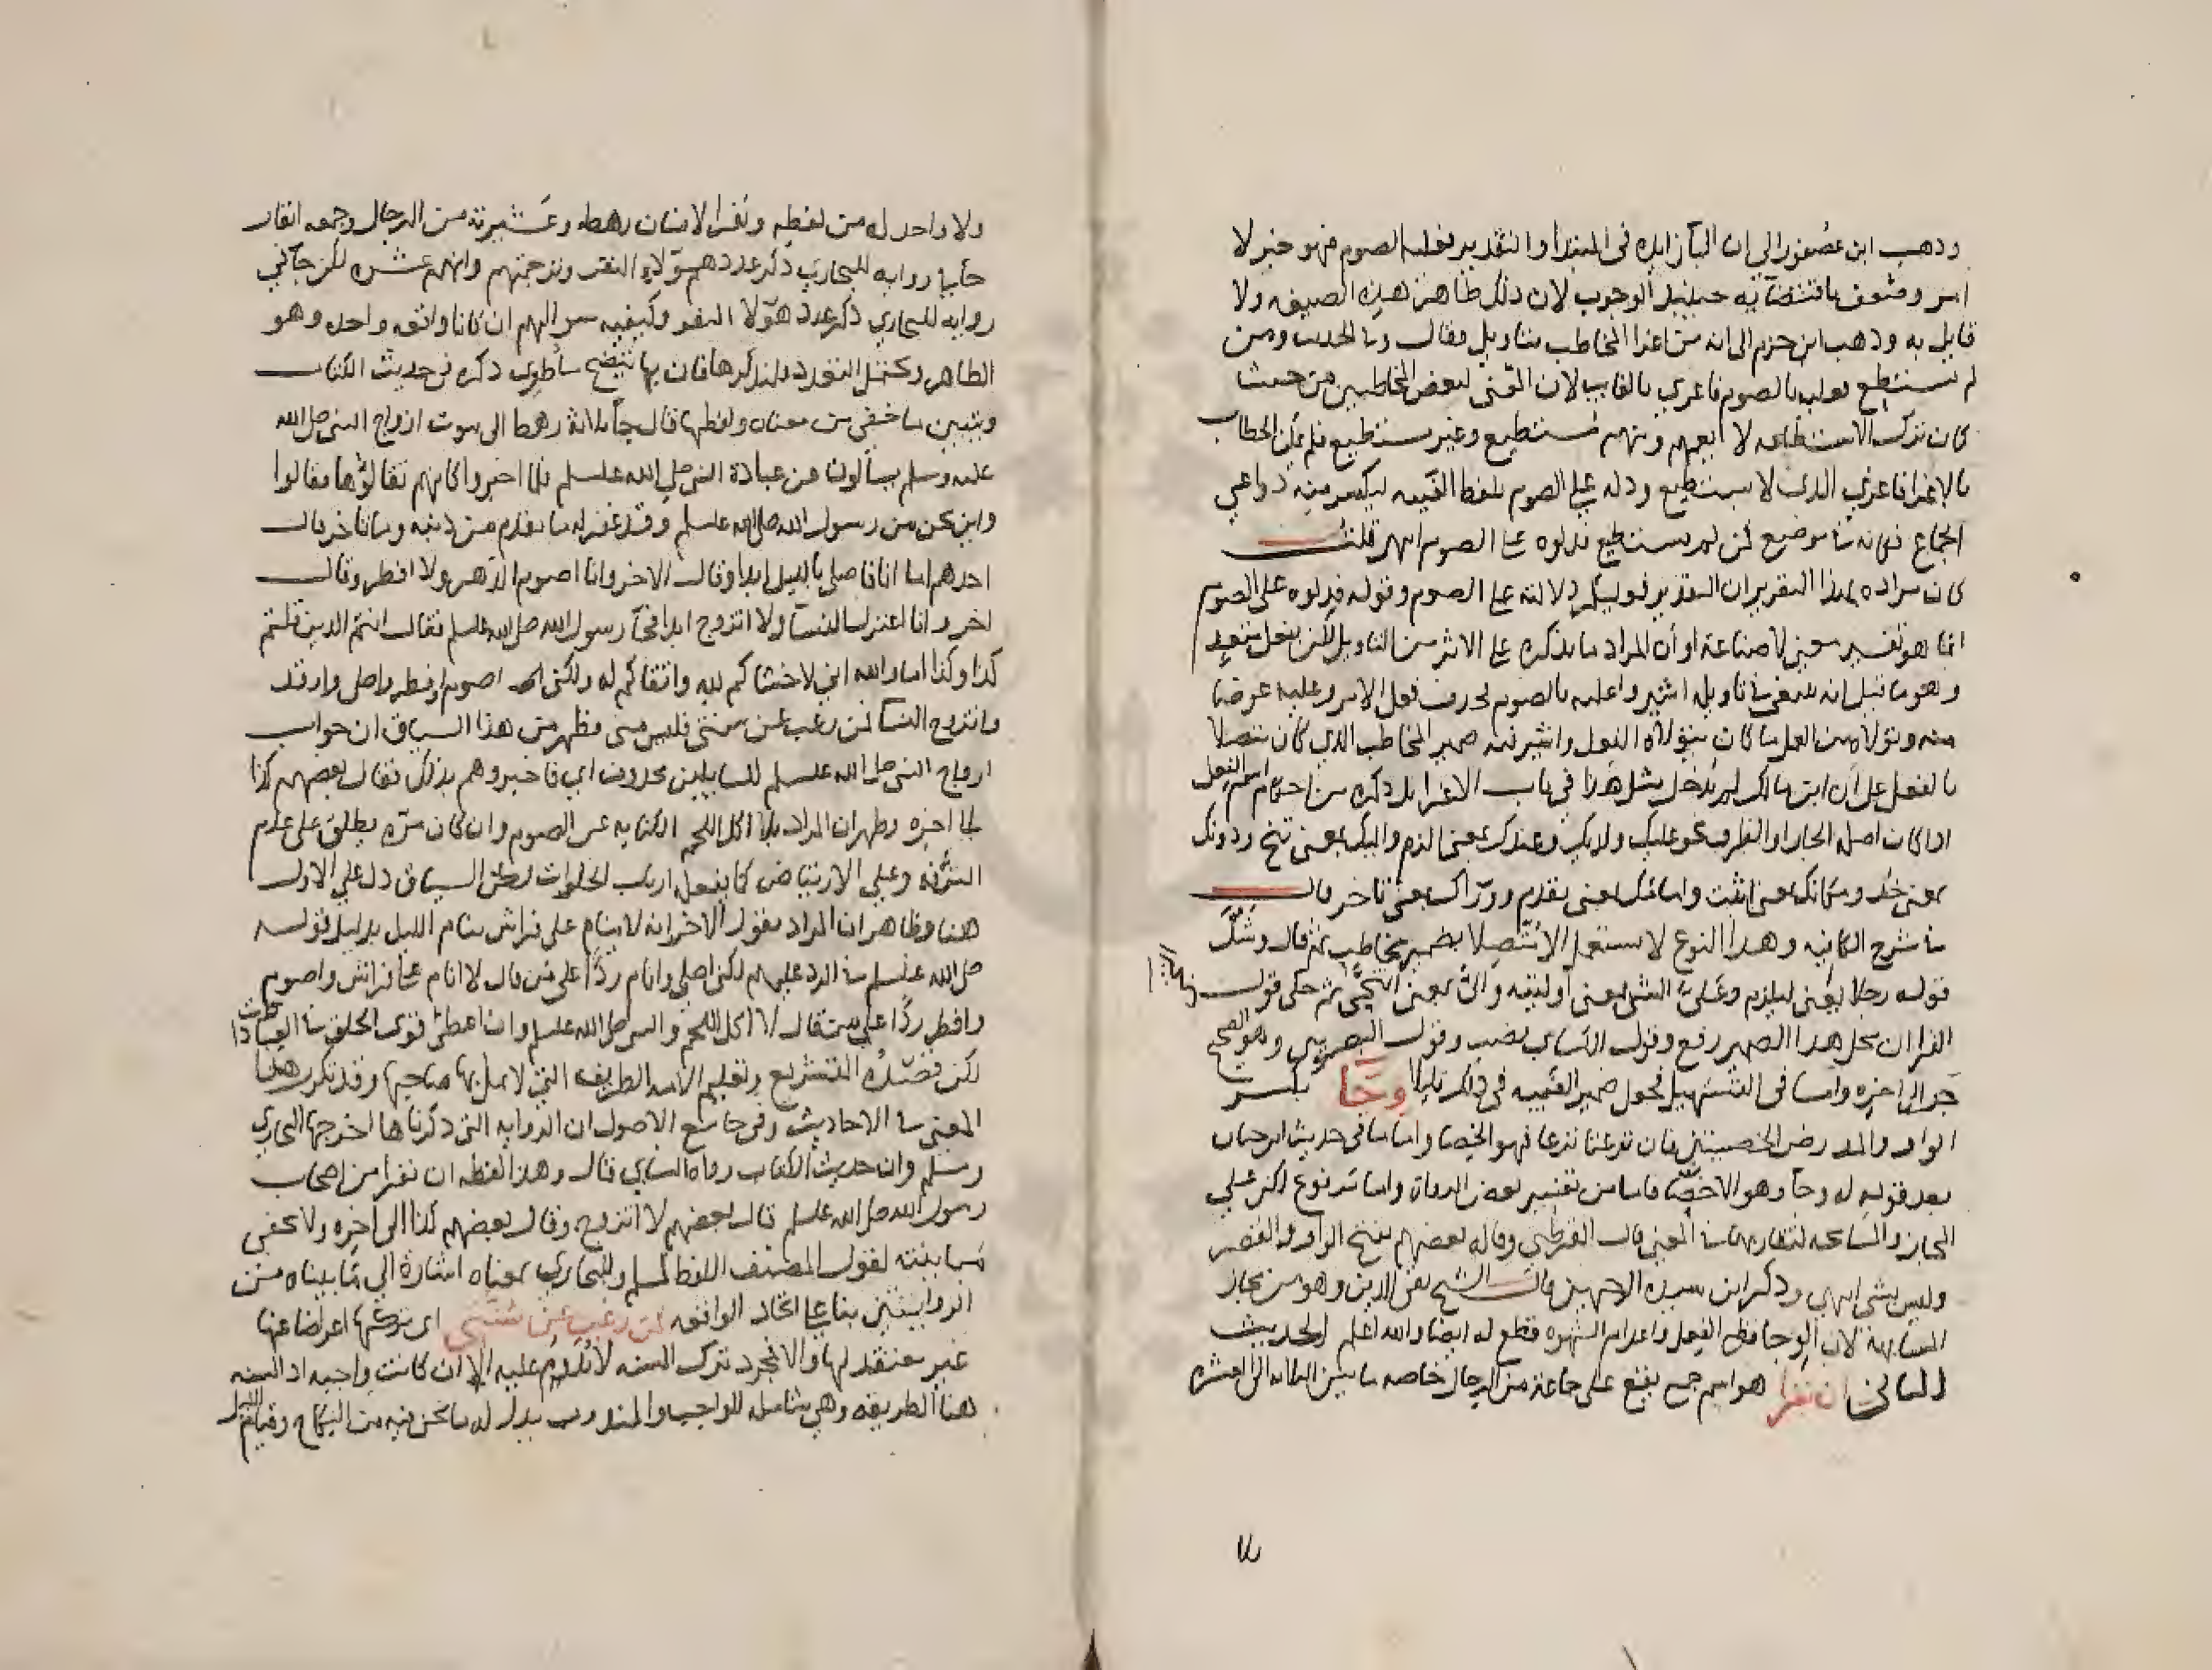 وذهب ابن عصفور الى ان البآ زايده في المبتدا والتقدير فعليه الصوم فهو خبر لا
امر ومتعق باقتضآيه حينيذ الوجوب لان ذلك ظاهر هذه الصيغه ولا
قايل به وذهب ابن حزم الى انه من اغرا المخاطب بتاويل فقال وبا لحديث ومن
لم يستطع فعليه بالصوم فاغري بالغايب لان القنى لبعض المخاطبين من حيث
كان تدرك الاستطاعه لا تعمهم ومنهم مستطيع وغير مستطيع فلم يمكن الخطاب
بالاغرا فاغري الذي لا يستطيع ودله على الصوم بلفظ الغيبه ليكسر منه دواعي
الجماع فكانه في موضع فمن لم يستطع فدلوه على الصوم انتهى قلت
كان مراده بهذا التقرير ان التقدير فوليكم دلالته على الصوم وقوله فدلوه على الصوم
انما هو تفسير معنى لا صناعة او أن المراد ما يذكره على الاثر من التاويل لكن بفعل متعد
وهو ما قيل انه ينبغي في تاويله اشيروا عليه بالصوم فحذف فعل الامر وعليه عوضا
منه وتولاه من العمل ما كان يتولاه الفعل واستتر فيه ضمير المخاطب الذي كان متصلا
بالفعل على أن ابن مالك لم يدخل مثل هذا في باب الاغرا بل ذكره من احكام اسم الفعل
اذا كان اصله الجار او الظرف نحو عليك ولديك وعندك بمعنى الزم واليك بمعنى تنح ودونك
بمعنى خذ ومكانك بمعنى اثبت وامامك بمعنى تقدم وورآك بمعنى تاخر قال
في شرح الكافيه وهذا النوع لا يستعمل الا متصلا بضمير مخاطب ثم قال وشذ
قوله رجلا يعني ليلزم وعلىّ الشي بمعنى أولنيه والىّ بمعنى أتنحّى ثم حكى قول
الفرا ان محل هذا الضمير رفع وقول الكسائي نصب وقول البصريين وهو الصحيح
جر الى اخره واما في التسهيل فحول ضمير الغيبه في ذلك قليلا وِجَا بكسر
الواو والمد رض الخصيتين فان نزعتا نزعا فهو الخصا واما ما في حديث ابن حبان
بعد قوله له وجآ وهو الاخصآ فاما من تفسير بعض الرواة واما مدفوع لكن على
المجاز والمسامحه لتقاربهما في المعنى قال القرطبي وقاله بعضهم بفتح الواو والقصر
وليس بشي انتهى وذكر ابن سيده الوجهين قال الشيخ تقي الدين وهو من مجاز
المشابهة لان الوجا قطع الفعل واعدام الشهوه قطع له ايضا والله اعلم الحديث
الثاني ان نفرا هو اسم جمع يقع على جماعة من الرجال خاصه ما بين الثلاثه الى العشره
ولا واحد له من لفظه ونفر الانسان رهطه وعشيرته من الرجال وجمعه انفار
جآ في روايه للبخاري ذكر عدد هؤلاء النفر وترجمتهم وانهم عشره لكن جآ في
روايه للبخاري ذكر عدد هؤلا النفر وكيفيه سوالهم ان كانا واقعه واحده وهو
الظاهر ويحتمل التعدد ولنذكرها فان بها يتضح ما طوى ذكره في حديث الكتاب
ويتبين ما خفي من معناه ولفظها قال جآ ثلاثة رهط الى بيوت ازواج النبي صلى الله
عليه وسلم يسألون عن عبادة النبي صلى الله عليه وسلم فلما اخبروا كانهم تقالّوها فقالوا
واين نحن من رسول الله صلى الله عليه وسلم وقد غفر له ما تقدم من ذنبه وما تاخر قال
احدهم اما انا فاصلي بالليل ابدا وقال الاخر وانا اصوم الدهر ولا افطر وقال
اخر وانا اعتزل النسآ ولا اتزوج ابدا فجآ رسول الله صلى الله عليه وسلم فقال انتم الذين قلتم
كذا وكذا اما والله اني لاخشاكم لله واتقاكم له ولكني اصوم وافطر واصلي وارقد
واتزوج النسآ فمن رغب عن سنتي فليس مني فظهر من هذا السياق ان جواب
ازواج النبي صلى الله عليه وسلم للسايلين محذوف اي فاخبروهم بذلك فقال بعضهم كذا
الى اخره وظهر ان المراد بلا اكل اللحم الكنايه عن الصوم وان كان مرّه يطلق على عدم
الترفه وعلى الارتياض كما يفعل ارباب الخلوات لكن السياق دل على الاول
هنا وظاهر ان المراد بقول الاخر انه لا ينام على فراش ينام الليل بدليل قوله
صلى الله عليه وسلم في الرد عليهم لكني اصلي وانام ردًّا على من قال لا انام على فراش واصوم
وافطر ردًّا على من قال لا اكل اللحم والنبي صلى الله عليه وسلم وان اعطى قوى الخلق في العبادات
لكن قصده التشريع وتعليم الامه الطريقه التي لا يمل بها صاحبها وقد تكرر هذا
المعنى في الاحاديث وفي جامع الاصول ان الروايه التي ذكرناها اخرجها البخاري
ومسلم وان حديث الكتاب رواه النسائي قال وهذا لفظه ان نفرا من اصحاب
رسول الله صلى الله عليه وسلم قال بعضهم لا اتزوج وقال بعضهم كذا الى اخره ولا يخفى
مباينته لقول المصنف اللفظ لمسلم وللبخاري بمعناه اشارة الى ما بيناه من
الروايتين بنا على اتحاد الواقعه فمن رغب عن سنتي اي تركها اعراضا عنها
غير معتقد لها والا فمجرد ترك السنه لا يُلام عليه الا ان كانت واجبه اذ السنه
هنا الطريقه وهي شامله للواجب والمندوب بدل له ما نحن فيه من النكاح وقيام الليل